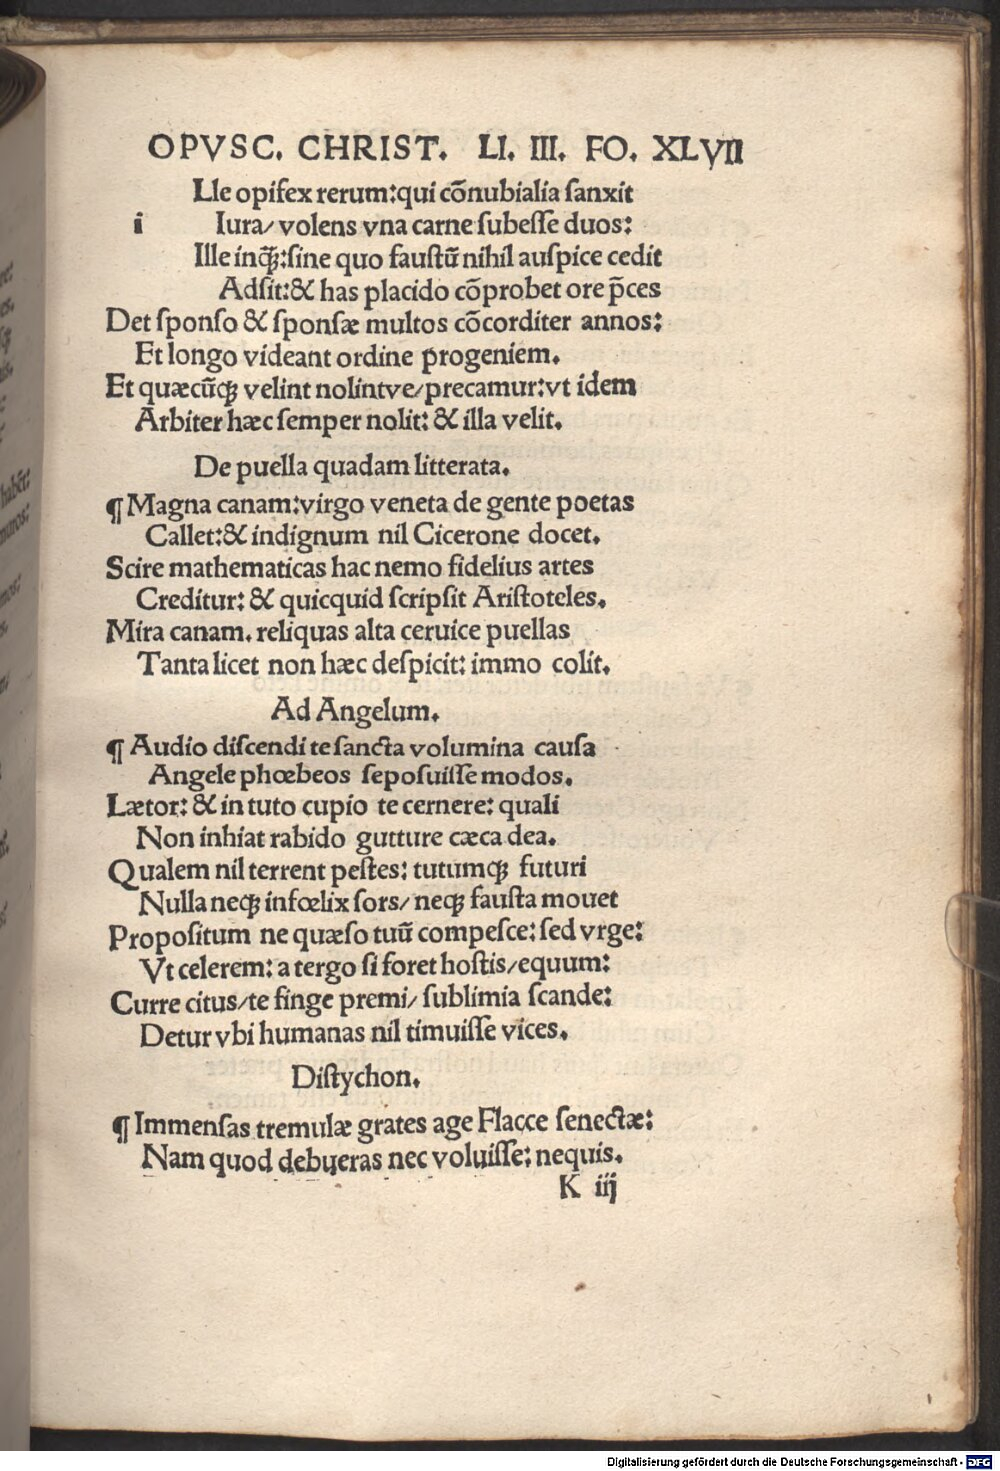 OPVSC. CHRIST. LI. III. FO. XLVII
Lle opifex rerum:qui cõnubialia ſanxit
i Iura/ volens vna carne ſubeſſe duos:
Ille inqꝫ:ſine quo fauſtũ nihil auſpice cedit
Adſit:& has placido cõprobet ore p̃ces
Det ſponſo & ſponſæ multos cõcorditer annos:
Et longo videant ordine progeniem.
Et quæcũqꝫ velint nolintve/precamur:vt idem
Arbiter hæc ſemper nolit: & illa velit.
De puella quadam litterata.
¶ Magna canam:virgo veneta de gente poetas
Callet:& indignum nil Cicerone docet.
Scire mathematicas hac nemo fidelius artes
Creditur: & quicquid ſcripſit Ariſtoteles.
Mira canam. reliquas alta ceruice puellas
Tanta licet non hæc deſpicit: immo colit.
Ad Angelum.
¶ Audio diſcendi te ſancta volumina cauſa
Angele phœbeos ſepoſuiſſe modos.
Lætor: & in tuto cupio te cernere: quali
Non inhiat rabido gutture cæca dea.
Qualem nil terrent peſtes: tutumqꝫ futuri
Nulla neqꝫ infœlix ſors/ neqꝫ fauſta mouet
Propoſitum ne quæſo tuũ compeſce: ſed vrge:
Vt celerem: a tergo ſi foret hoſtis/equum:
Curre citus/te finge premi/ ſublimia ſcande:
Detur vbi humanas nil timuiſſe vices.
Diſtychon.
¶ Immenſas tremulæ grates age Flacce ſenectæ:
Nam quod debueras nec voluiſſe: nequis.
K iij
habēt:
muros:
Digitalisierung gefördert durch die Deutsche Forschungsgemeinschaft - DFG